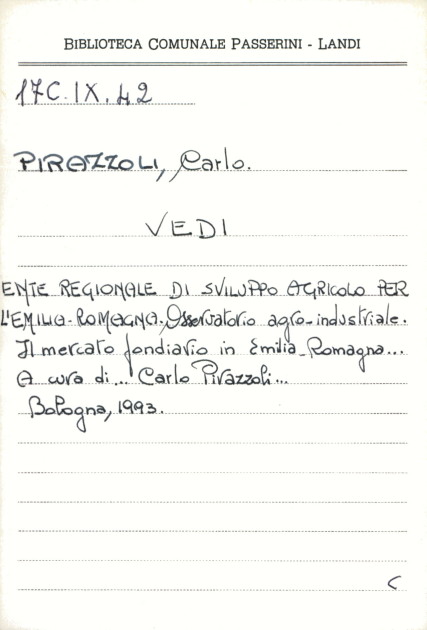 BIBLIOTECA COMUNALE PASSERINI - LANDI
17C.IX.42
PIRAZZOLI, Carlo.
VEDI
ENTE REGIONALE DI SVILUPPO AGRICOLO PER
L'EMILIA-ROMAGNA. Osservatorio agro-industriale.
Il mercato fondiario in Emilia-Romagna...
A cura di... Carlo Pirazzoli...
Bologna, 1993.
C